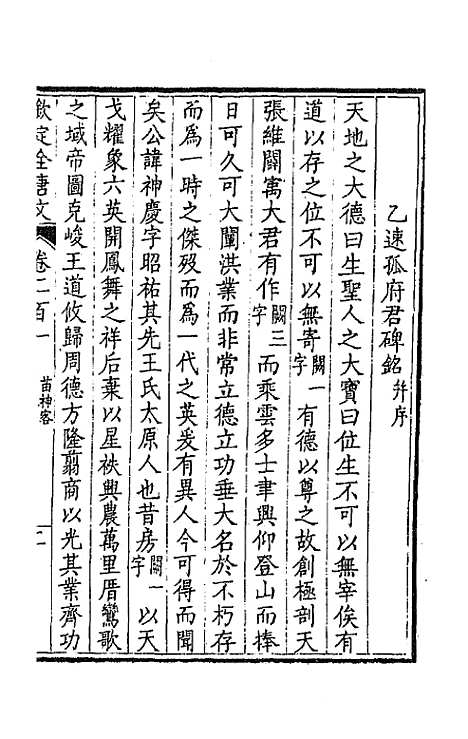 乙速孤府君碑銘并序
天地之大德曰生聖人之大寶曰位生不可以無宰俟有
道以存之位不可以無寄闕一字有德以尊之故創極剖天
張維闢寓大君有作闕三字而乘雲多士聿興仰登山而捧
日可久可大闡洪業而非常立德立功垂大名於不朽存
而為一時之傑歿而為一代之英爰有異人今可得而聞
矣公諱神慶字昭祐其先王氏太原人也昔房闕一字以天
戈耀象六英開鳳舞之祥后棄以星袂興農萬里厝鸞歌
之域帝圖克峻王道攸歸周德方隆翦商以光其業齊功
欽定全唐文 卷二百一 苗神客 二